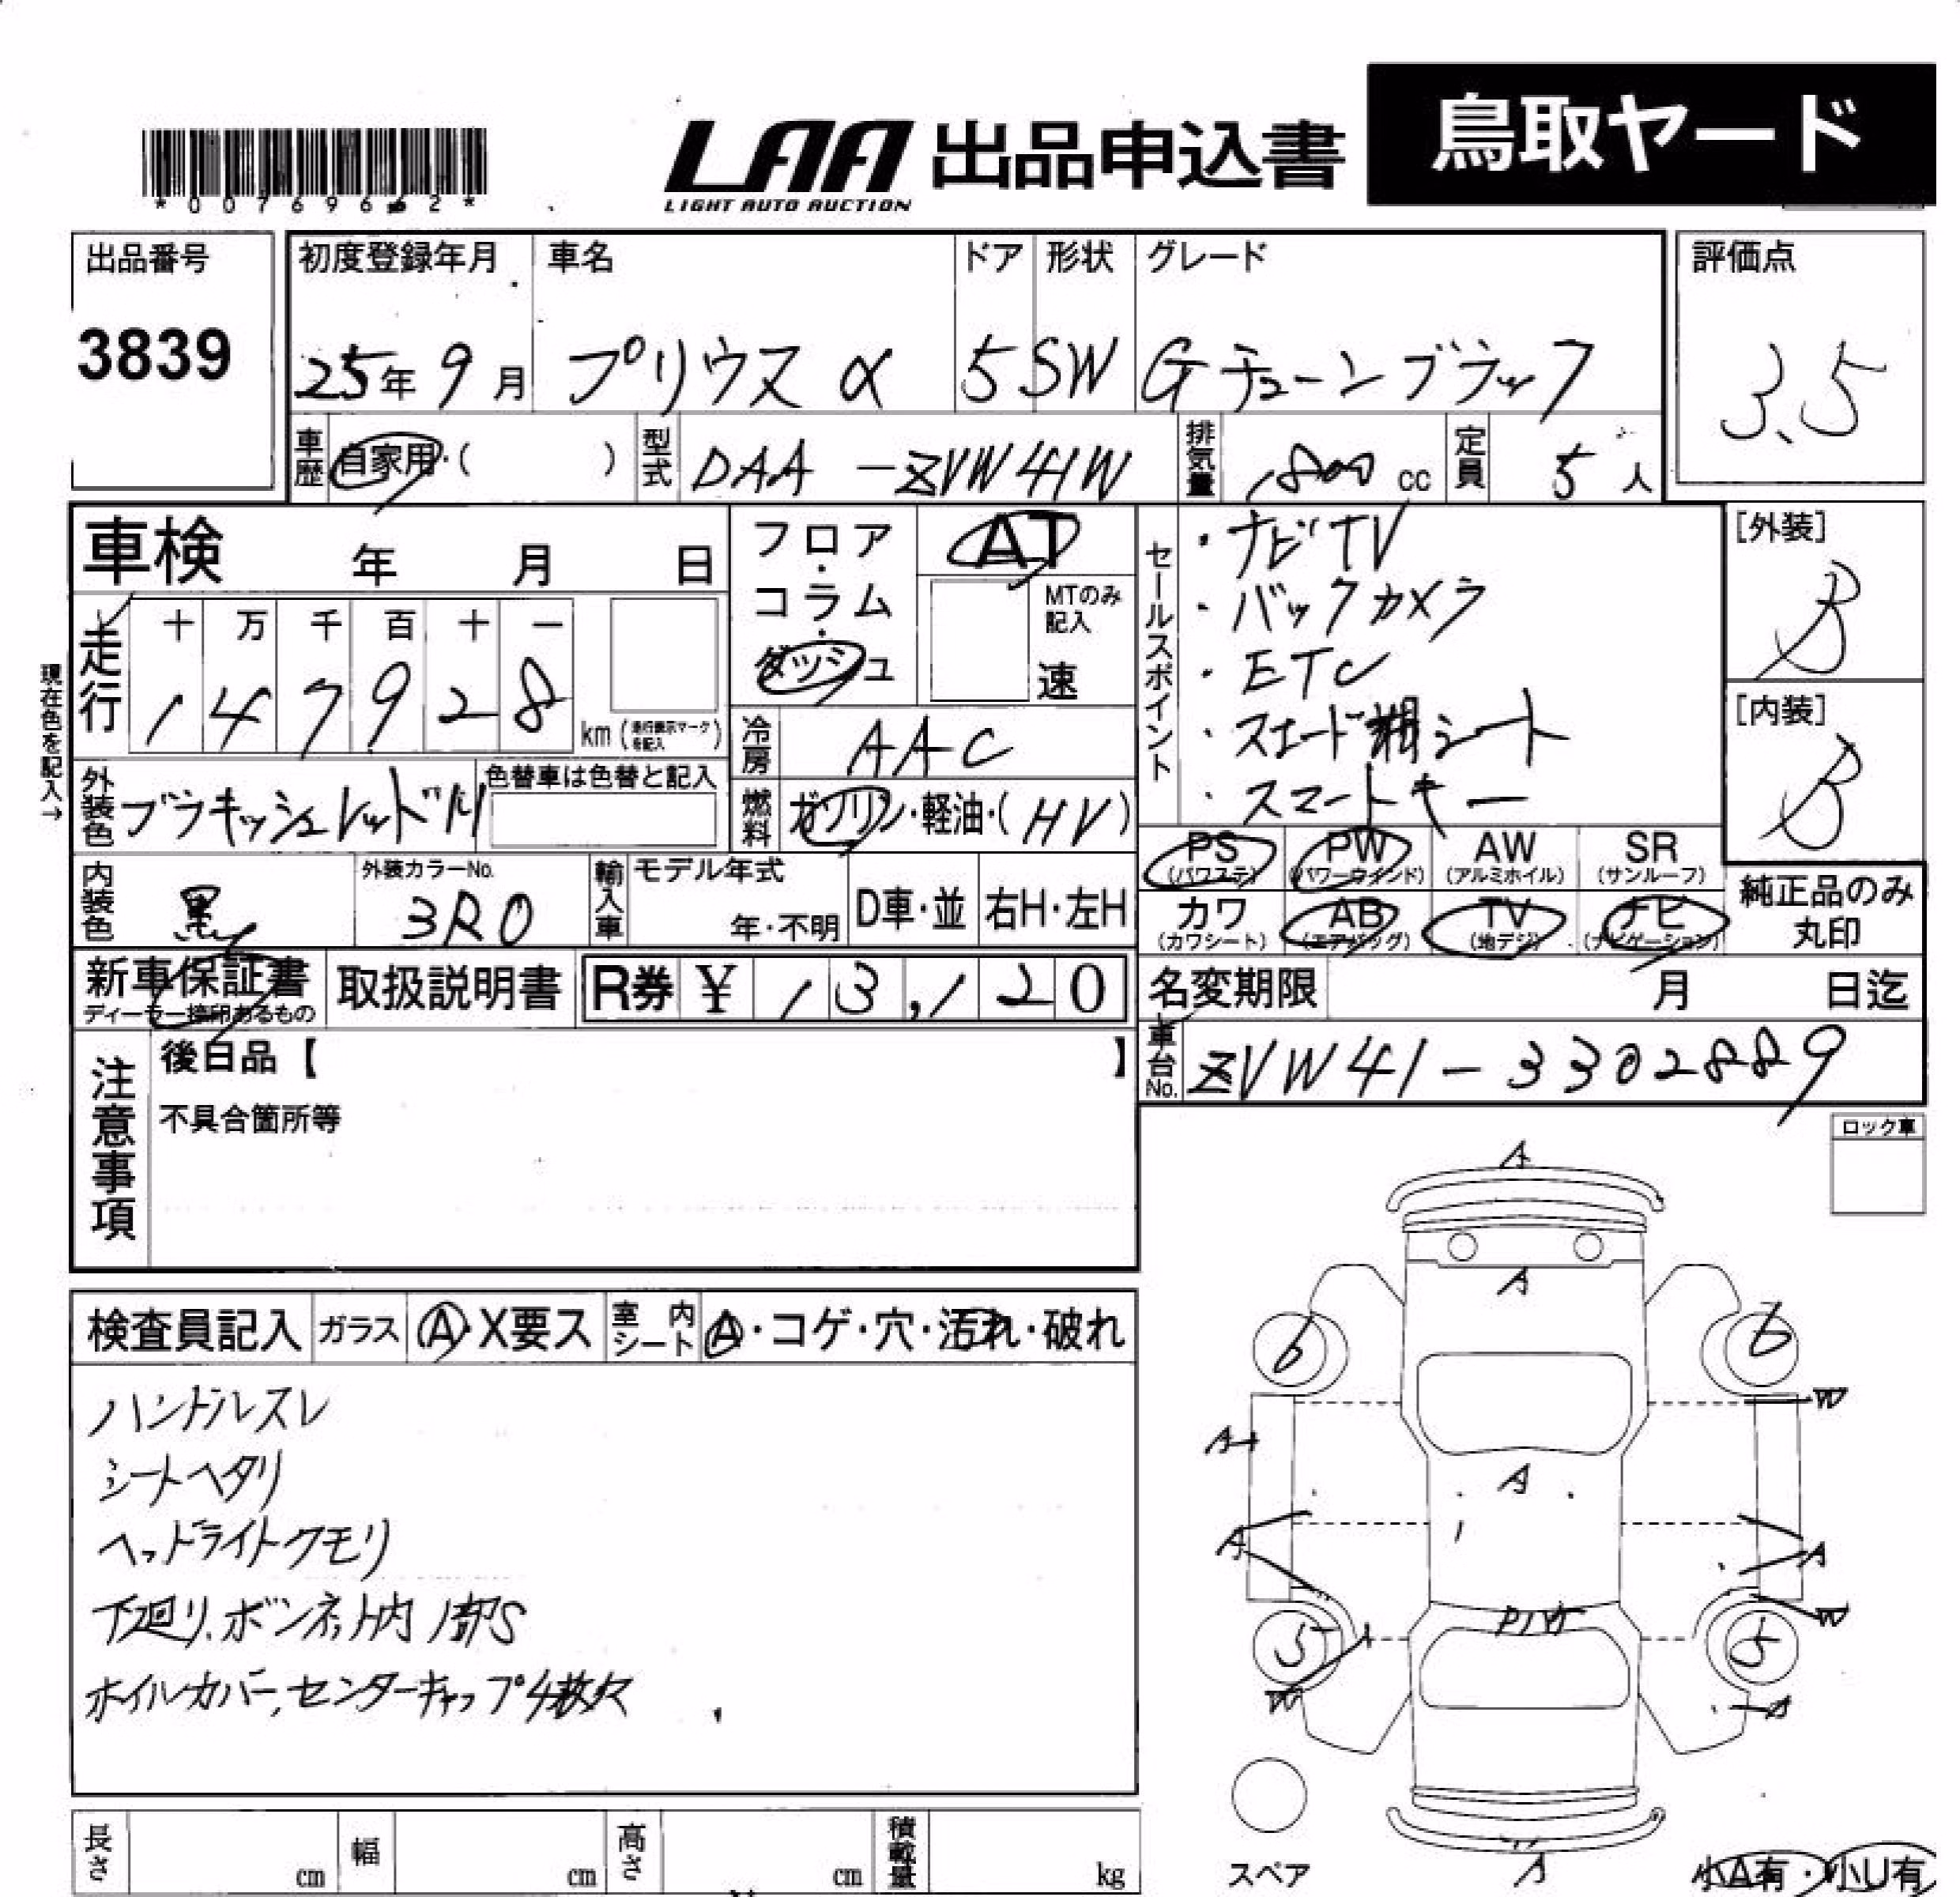 LAA 出品申込書 鳥取ヤード
LIGHT AUTO AUCTION
*00769662*
出品番号 初度登録年月 車名 ドア 形状 グレード 評価点
3839 25年9月 プリウスα 5 SW Gチューンブラック 3.5
車歴 自家用・( ) 型式 DAA-ZVW41W 排気量 1800cc 定員 5人
車検 年 月 日 フロア・コラム・ダッシュ AT
MTのみ記入 速
セールスポイント
・ナビTV
・バックカメラ
・ETC
・スエード調シート
・スマートキー
[外装] B
[内装] B
現在色を記入→
走行 十 万 千 百 十 一
147928 km (走行表示マークを記入)
冷房 AAC
外装色 ブラキッシュレッドM 色替車は色替と記入
燃料 ガソリン・軽油・(HV)
PS (パワステ) PW (パワーウインド) AW (アルミホイル) SR (サンルーフ)
カワ (カワシート) AB (エアバッグ) TV (地デジ) ナビ (ナビゲーション)
純正品のみ丸印
内装色 黒 外装カラーNo. 3R0 輸入車 モデル年式 年・不明 D車・並 右H・左H
新車保証書 取扱説明書 R券 ¥13,120 名変期限 月 日迄
ディーラー捺印あるもの
車台No. ZVW41-3302889
注意事項
後日品【 】
不具合箇所等
ロック車
検査員記入 ガラス A・X要ス 室内シート A・コゲ・穴・汚れ・破れ
ハンドルスレ
シートヘタリ
ヘッドライトクモリ
下廻り、ボンネット内1部S
ホイルカバー、センターキャップ4枚欠
A
A
6 6
W
A
A
A A
W
5 5
W
A
スペア
小A有・小U有
長さ cm 幅 cm 高さ cm 積載量 kg